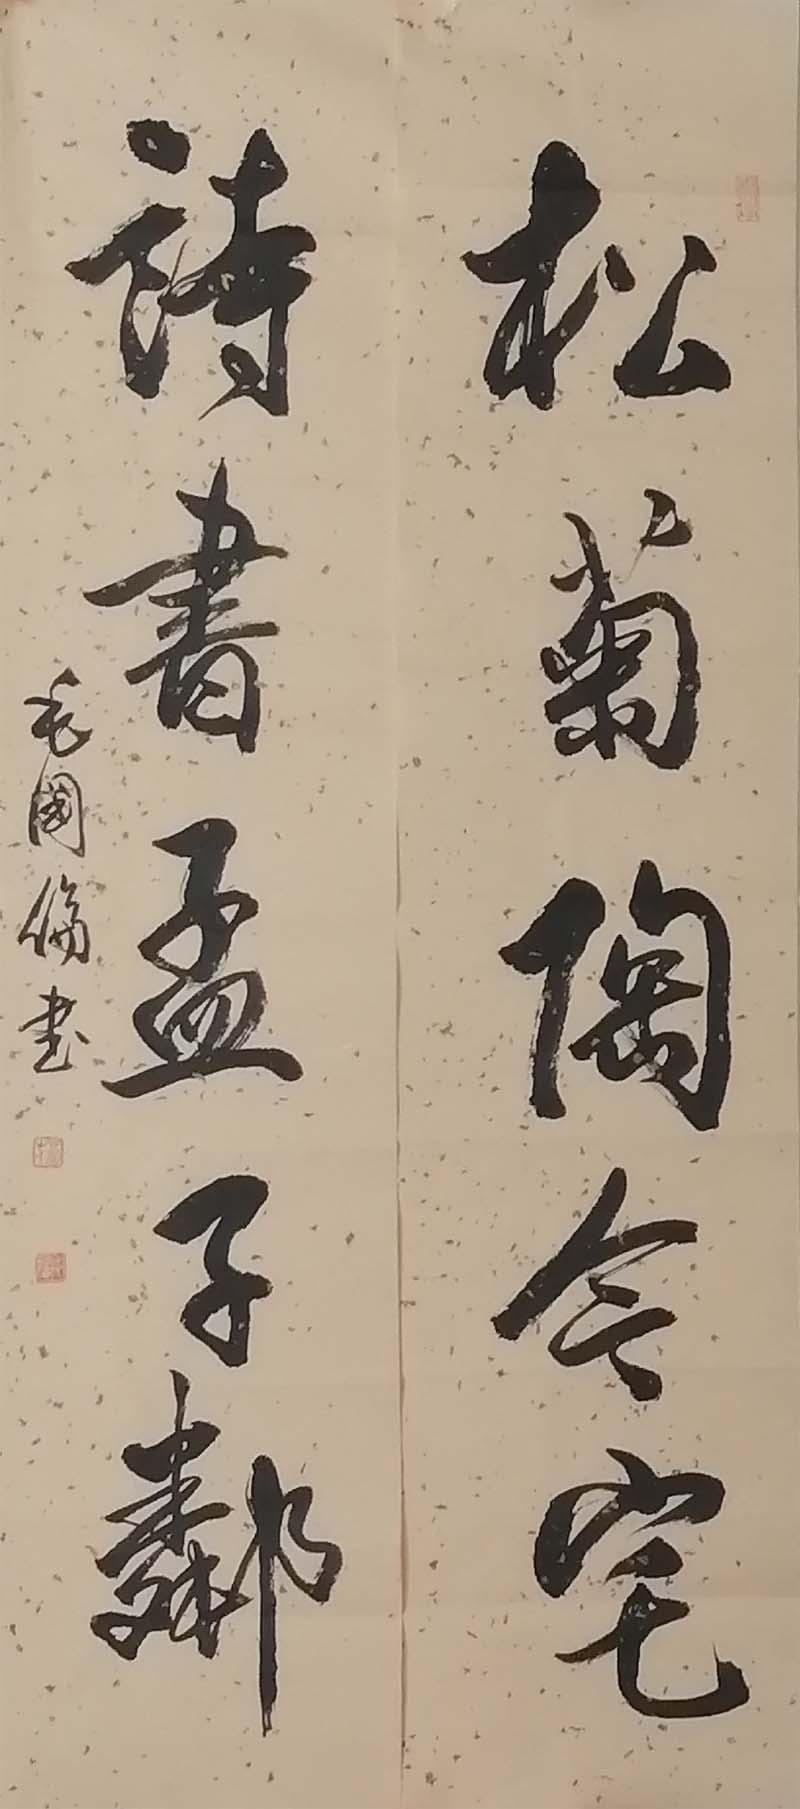 松菊陶令宅
詩書孟子鄰
毛國倫书